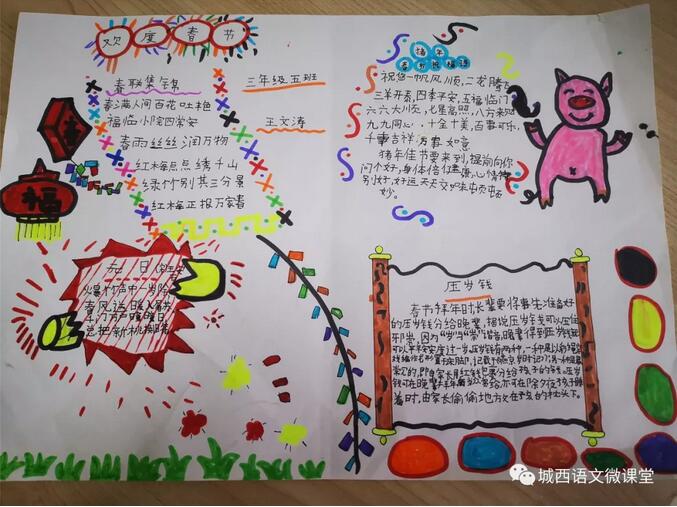 欢度春节
春联集锦
三年级五班
王文涛
春满人间百花吐艳
福临小院四季安
春雨丝丝润万物
红梅点点绣千山
绿竹别其三分景
红梅正报万家春
福
元日
爆竹声中一岁除
春风送暖入屠苏
千门万户曈曈日
总把新桃换旧符
猪年
春节祝福语
祝您一帆风顺,二龙腾飞
三羊开泰,四季平安,五福临门
六六大顺,七星高照,八方来财
九九同心,十全十美,百事可乐,
千事吉祥,万事如意
猪年佳节要来到,提前向你
问个好,身体倍儿健康,心情特
别好,好运天天交,口味顿顿
妙。
压岁钱
春节拜年时长辈要将事先准备好
的压岁钱分给晚辈,据说压岁钱可以压住
邪祟,因为"岁"与"祟"谐音,晚辈得到压岁钱就
可以平平安安度过一岁。压岁钱有两种,一种是以
常见的,即由家长用红纸包裹分给孩子的钱。压岁
着时,由家长偷偷地放在孩子的枕头下。
城西语文微课堂